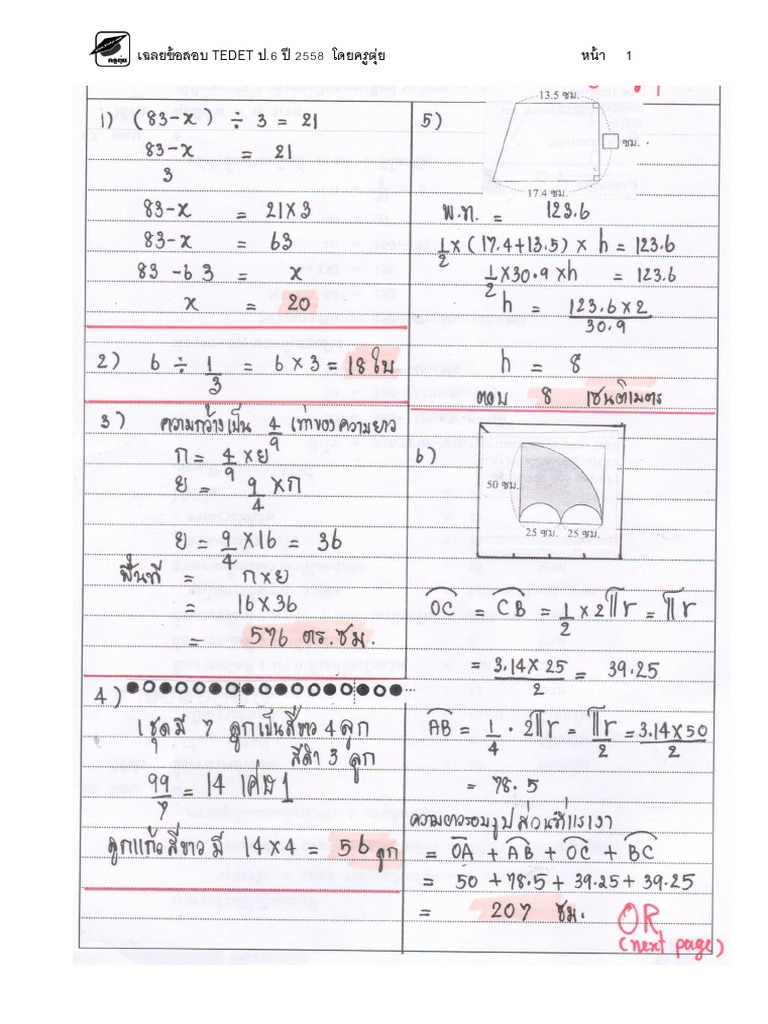 ครูตุ่ย
เฉลยข้อสอบ TEDET ป.6 ปี 2558 โดยครูตุ่ย หน้า 1
1) (83-x) ÷ 3 = 21
83-x = 21
3
83-x = 21x3
83-x = 63
83-63 = x
x = 20
2) 6 ÷ 1/3 = 6x3 = 18 ใบ
3) ความกว้างเป็น 4/9 เท่าของความยาว
ก = 4/9 x ย
ย = 9/4 x ก
ย = 9/4 x 16 = 36
พื้นที่ = ก x ย
= 16 x 36
= 576 ตร.ซม.
4)
1 ชุดมี 7 ลูกเป็นสีขาว 4 ลูก
สีดำ 3 ลูก
99/7 = 14 เศษ 1
ลูกแก้วสีขาวมี 14x4 = 56 ลูก
5)
13.5 ซม.
ซม.
17.4 ซม.
พ.ท. = 123.6
1/2 x (17.4+13.5) x h = 123.6
1/2 x 30.9 x h = 123.6
h = 123.6x2/30.9
h = 8
ตอบ 8 เซนติเมตร
6)
50 ซม.
25 ซม. 25 ซม.
OC = CB = 1/2 x 2πr = πr
= 3.14x25/2 = 39.25
AB = 1/4 · 2πr = πr/2 = 3.14x50/2
= 78.5
ความยาวรอบรูปส่วนที่แรเงา
= OA + AB + OC + BC
= 50 + 78.5 + 39.25 + 39.25
= 207 ซม.
OR
(next page)